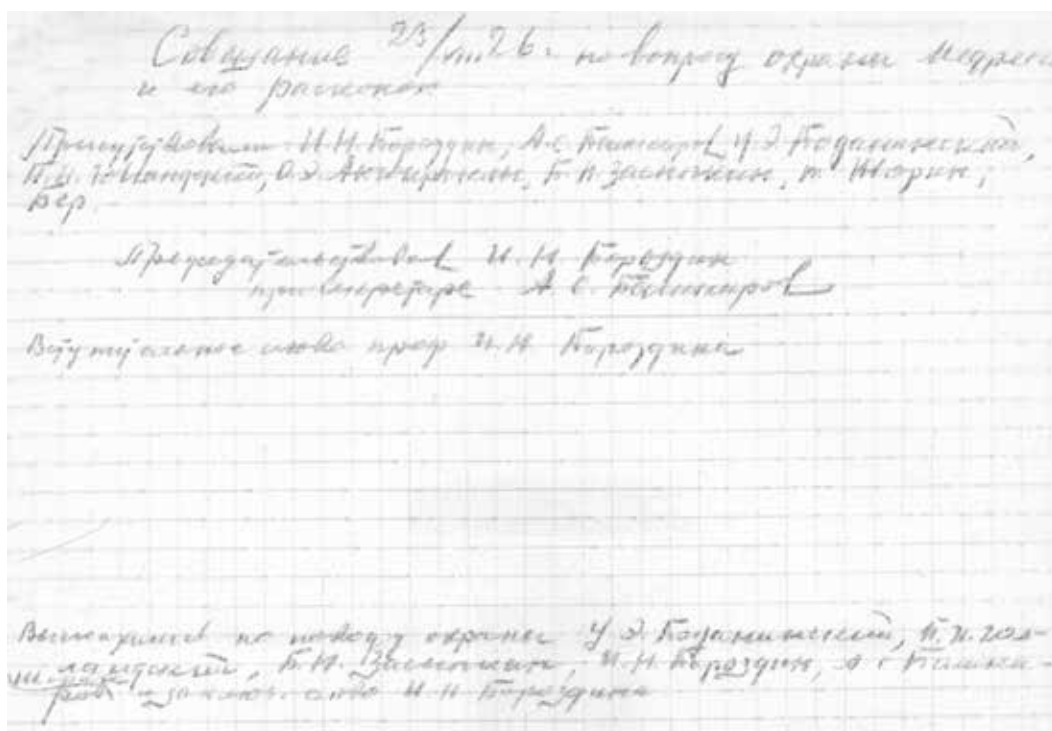 Совещание 23/VIII 26 г. по вопросу охраны медресе
и его раскопок
Присутствовали И.Н. Бороздин, А.С. Башкиров, У.Э. Боданинский,
П.И. Голландский, О.Э. Акчокраклы, Б.Н. Засыпкин, т.
Председательствовал И.Н. Бороздин
при секретаре А.С. Башкиров
Вступительное слово проф И.Н. Бороздина
Высказались по поводу охраны У.Э. Боданинский, П.И. Гол-
ландский, Б.Н. Засыпкин, И.Н. Бороздин, А.С. Башки-
ров заключ. слово И.Н. Бороздина